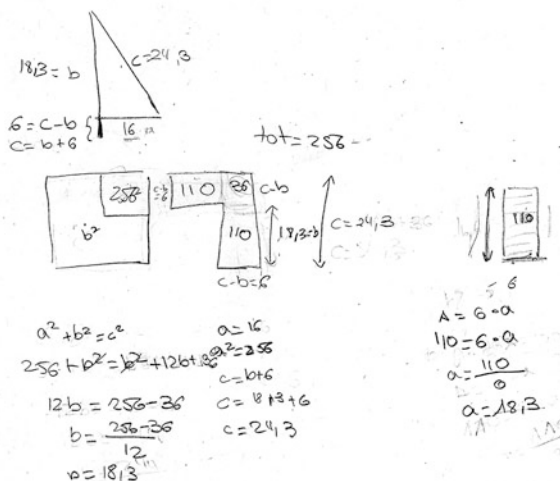 18,3 = b
c=24,3
6 = c-b
c = b+6
16
tot = 256
256
b²
c-b
=6
110
36
c-b
110
18,3=b
c=24,3
c-b=6
110
6
a² + b² = c²
256 + b² = b² + 12b + 36
12·b = 256-36
b = 256-36
12
b = 18,3
a = 16
a² = 256
c = b+6
c = 18,3+6
c = 24,3
A = 6·a
110 = 6·a
a = 110
6
a = 18,3